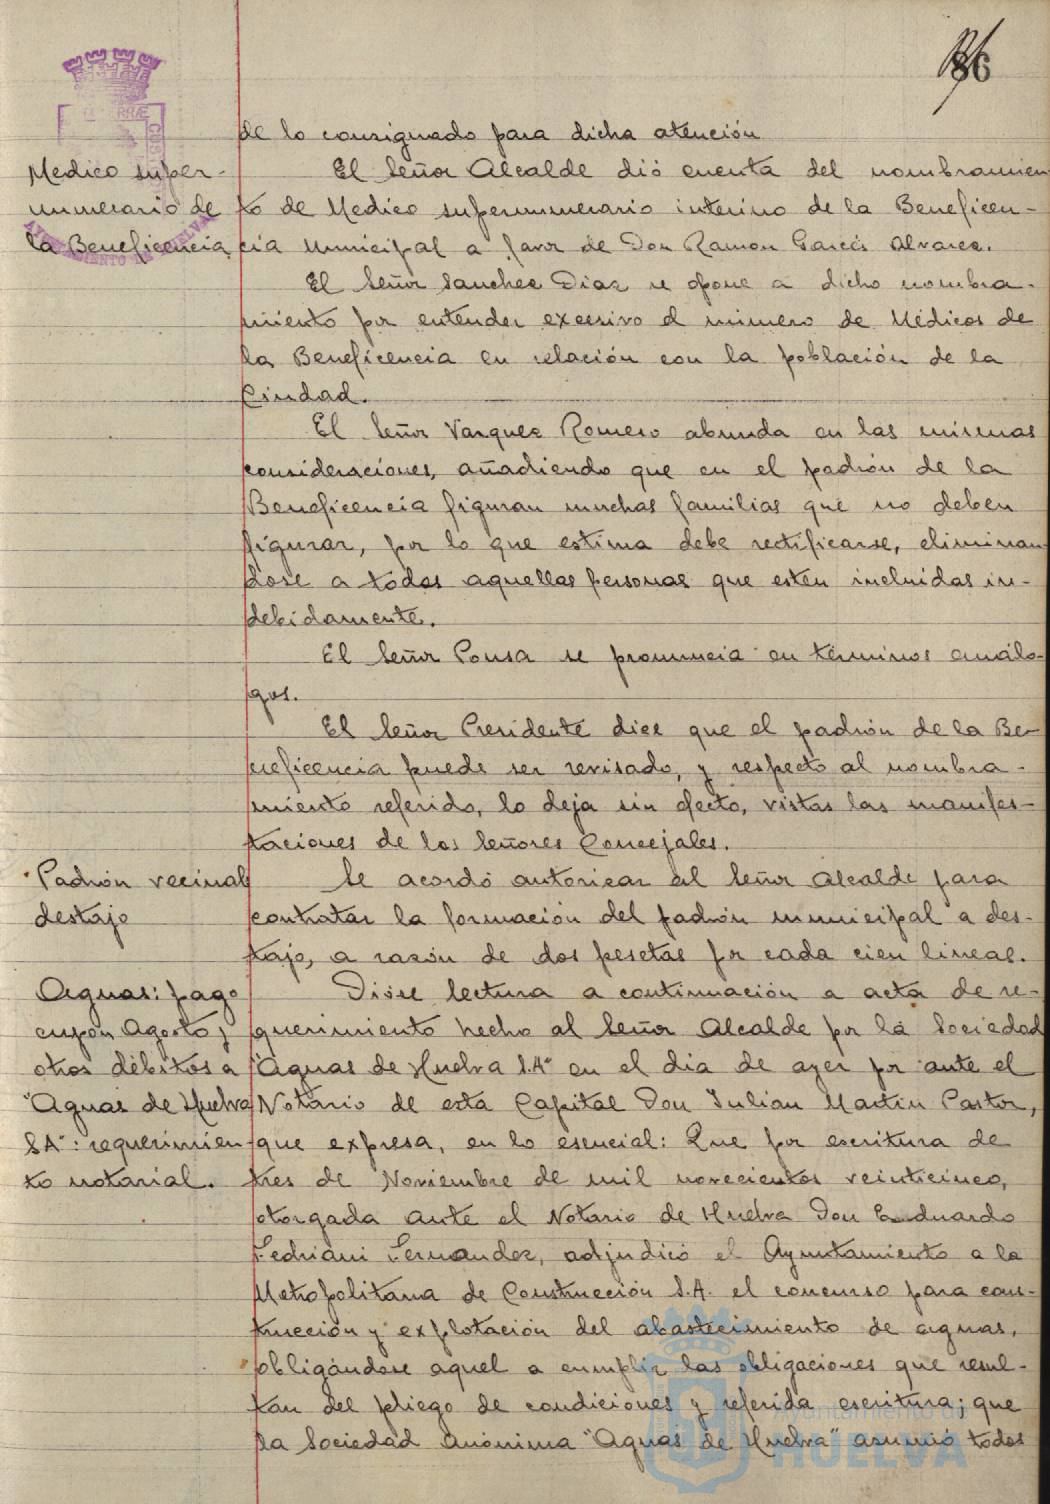 86
de lo consignado para dicha atención
Medico super-
numerario de
la Beneficencia
El Señor Alcalde dió cuenta del nombramien
to de Medico supernumerario interino de la Beneficen-
cia Municipal a favor de Don Ramon Garcés Alvarez.
El Señor Sanchez Diaz se opone a dicho nombra-
miento por entender excesivo el número de Médicos de
la Beneficencia en relación con la población de la
Ciudad.
El Señor Vazquez Romero abunda en las mismas
consideraciones, añadiendo que en el padrón de la
Beneficencia figuran muchas familias que no deben
figurar, por lo que estima debe rectificarse, eliminan
dose a todas aquellas personas que esten incluidas in-
debidamente.
El Señor Ponsa se pronuncia en términos análo-
gos.
El Señor Presidente dice que el padrón de la Be-
neficencia puede ser revisado, y respecto al nombra-
miento referido, lo deja sin efecto, vistas las manifes-
taciones de los Señores Concejales.
Padrón vecinal
destajo
Se acordó autorizar al Señor Alcalde para
contratar la formación del padrón municipal a des-
tajo, a razón de dos pesetas por cada cien lineas.
Aguas: pago
cupón Agosto;
otros débitos a
"Aguas de Huelva
S.A": requerimien-
to notarial.
Dióse lectura a continuación a acta de re-
querimiento hecho al Señor Alcalde por la Sociedad
"Aguas de Huelva S.A" en el dia de ayer por ante el
Notario de esta Capital Don Julian Martin Pastor,
que expresa, en lo esencial: Que por escritura de
tres de Noviembre de mil novecientos veinticinco,
otorgada ante el Notario de Huelva Don Eduardo
Fedriani Fernandez, adjudicó el Ayuntamiento a la
Metropolitana de Construcción S.A. el concurso para cons-
trucción y explotación del abastecimiento de aguas,
obligándose aquel a cumplir las obligaciones que resul-
tan del pliego de condiciones y referida escritura; que
la Sociedad Anónima "Aguas de Huelva" asumió todos
Ayuntamiento de
HUELVA